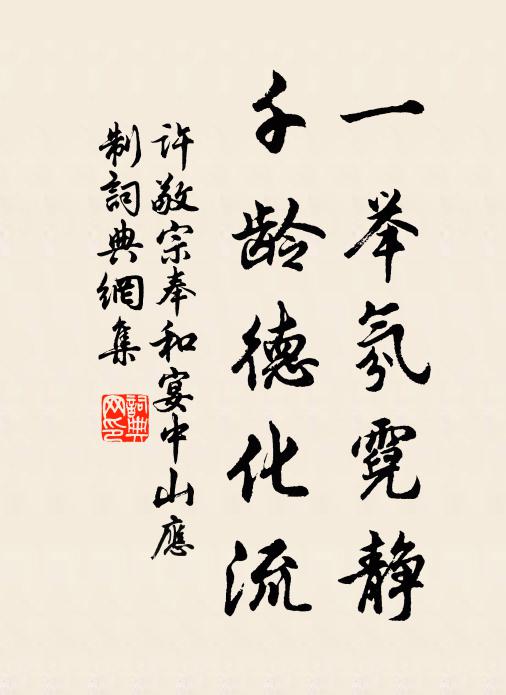 一举氛霓静
千龄德化流
许敬宗奉和宴中山應
制詞典網集
詞典网印